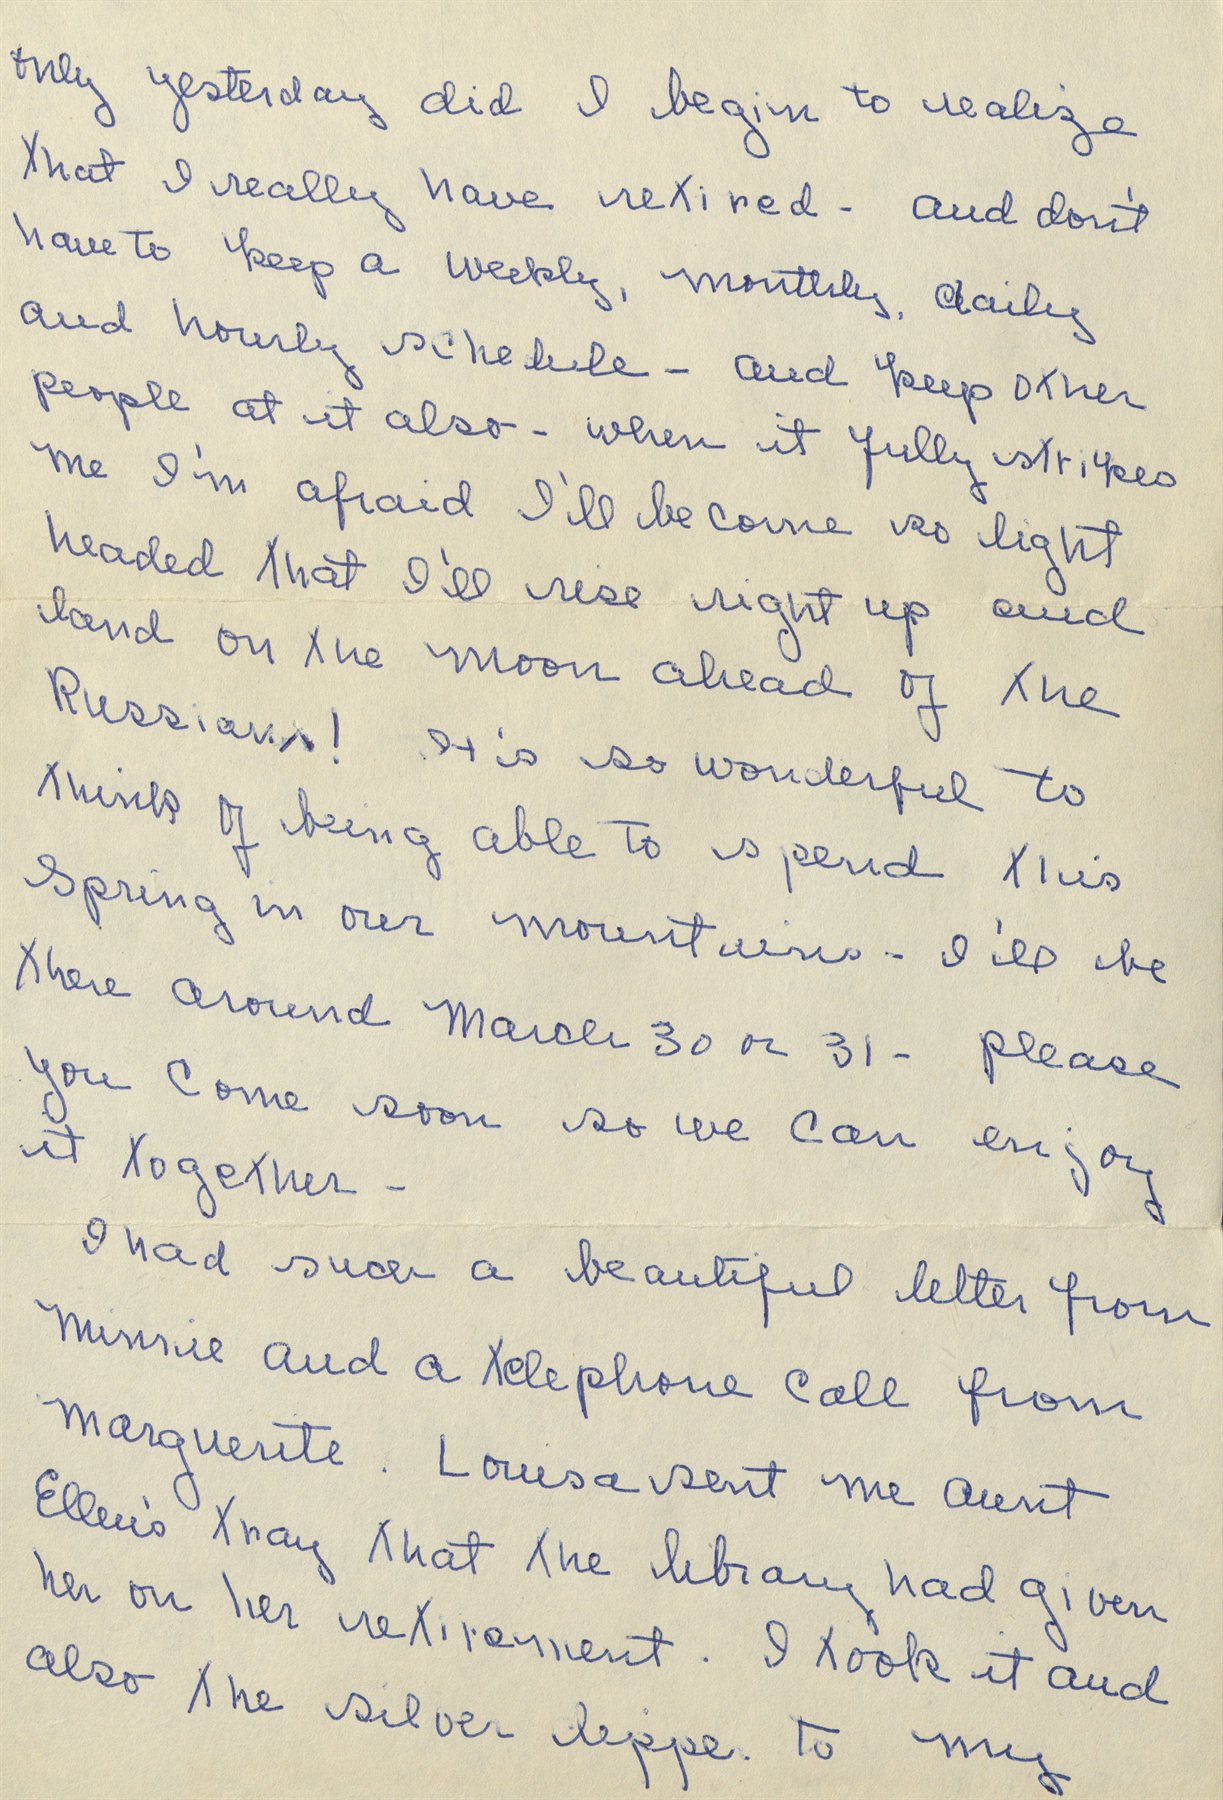 Only yesterday did I begin to realize
that I really have retired - and don't
have to keep a weekly, monthly, daily
and hourly schedule - and keep other
people at it also - when it fully strikes
me I'm afraid I'll become so light
headed that I'll rise right up and
land on the moon ahead of the
Russians! It is so wonderful to
think of being able to spend this
Spring in our mountains - I'll be
there around March 30 or 31 - please
you come soon so we can enjoy
it together -
I had such a beautiful letter from
Minnie and a telephone call from
Marguerite. Louisa sent me Aunt
Ellen's tray that the library had given
her on her retirement. I took it and
also the silver to my